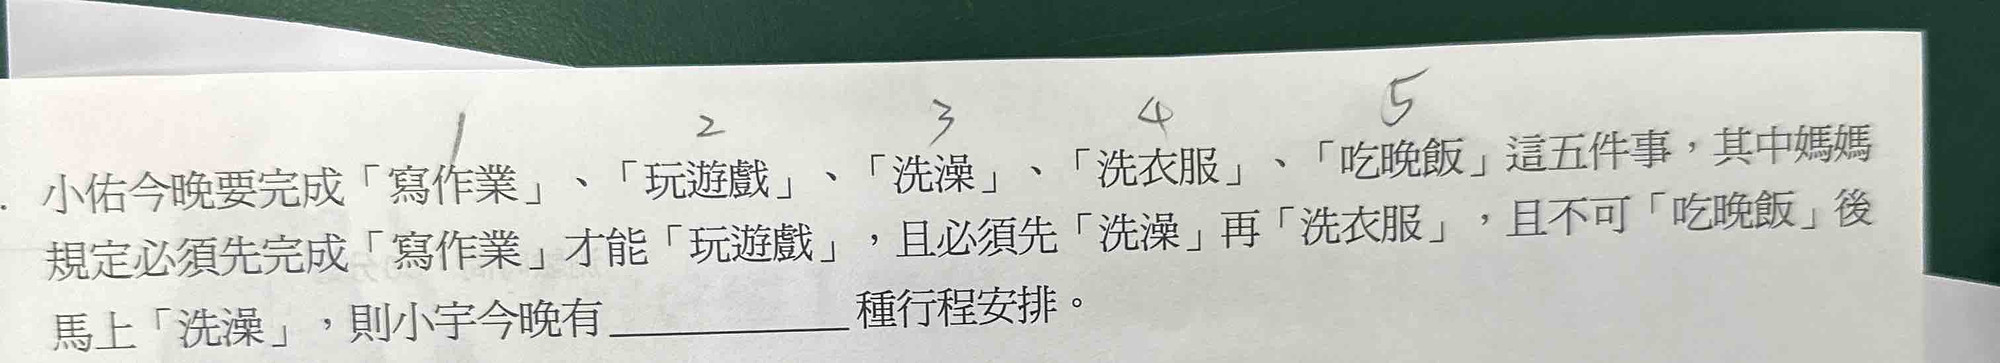 1 2 3 4 5
. 小佑今晚要完成「寫作業」、「玩遊戲」、「洗澡」、「洗衣服」、「吃晚飯」這五件事,其中媽媽
規定必須先完成「寫作業」才能「玩遊戲」,且必須先「洗澡」再「洗衣服」,且不可「吃晚飯」後
馬上「洗澡」,則小宇今晚有__________種行程安排。